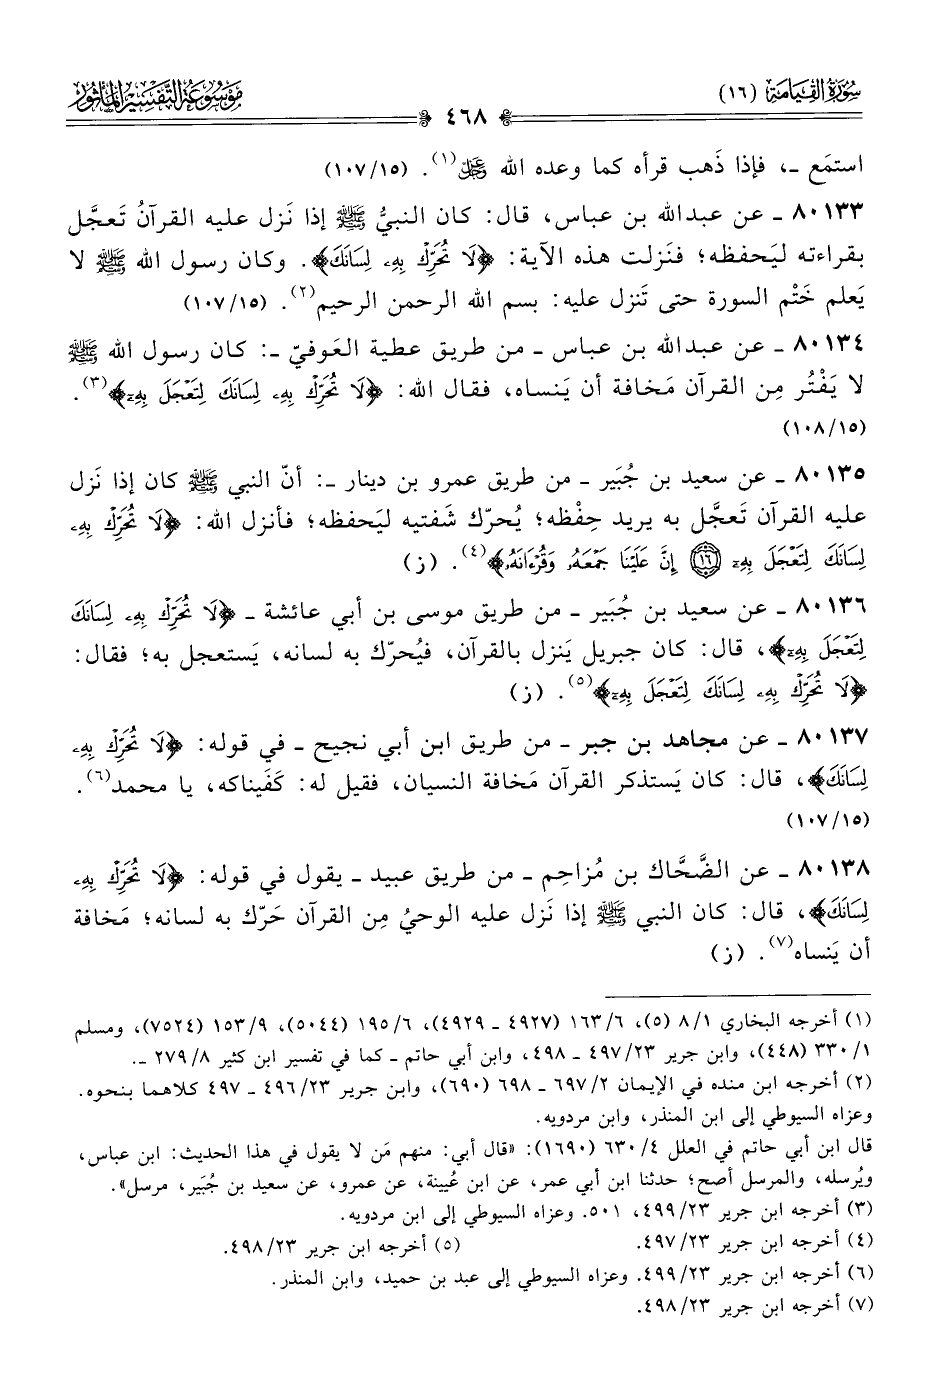 سُورَةُ القِيَامَة (١٦)
٤٦٨
مَوْسُوعَةُ التَّفْسِيرِ المَأْثُورِ
استمَع ـ، فإذا ذَهب قرأه كما وعده الله ﷿(١). (١٥/ ١٠٧)
٨٠١٣٣ ـ عن عبدالله بن عباس، قال: كان النبيُّ ﷺ إذا نَزل عليه القرآنُ تَعجَّل
بقراءته ليَحفظه؛ فنَزلت هذه الآية: ﴿لَا تُحَرِّكْ بِهِۦ لِسَانَكَ﴾. وكان رسول الله ﷺ لا
يَعلم خَتْم السورة حتى تَنزل عليه: بسم الله الرحمن الرحيم(٢). (١٥/ ١٠٧)
٨٠١٣٤ ـ عن عبدالله بن عباس ـ من طريق عطية العَوفيّ ـ: كان رسول الله ﷺ
لا يَفْتُر مِن القرآن مَخافة أن يَنساه، فقال الله: ﴿لَا تُحَرِّكْ بِهِۦ لِسَانَكَ لِتَعْجَلَ بِهِۦٓ﴾(٣).
(١٥/ ١٠٨)
٨٠١٣٥ ـ عن سعيد بن جُبَير ـ من طريق عمرو بن دينار ـ: أنّ النبي ﷺ كان إذا نَزل
عليه القرآن تَعجَّل به يريد حِفْظه؛ يُحرّك شَفتيه ليَحفظه؛ فأنزل الله: ﴿لَا تُحَرِّكْ بِهِۦ
لِسَانَكَ لِتَعْجَلَ بِهِۦٓ ۝١٦ إِنَّ عَلَيْنَا جَمْعَهُۥ وَقُرْءَانَهُۥ﴾(٤). (ز)
٨٠١٣٦ ـ عن سعيد بن جُبَير ـ من طريق موسى بن أبي عائشة ـ ﴿لَا تُحَرِّكْ بِهِۦ لِسَانَكَ
لِتَعْجَلَ بِهِۦٓ﴾، قال: كان جبريل يَنزل بالقرآن، فيُحرّك به لسانه، يَستعجل به؛ فقال:
﴿لَا تُحَرِّكْ بِهِۦ لِسَانَكَ لِتَعْجَلَ بِهِۦٓ﴾(٥). (ز)
٨٠١٣٧ ـ عن مجاهد بن جبر ـ من طريق ابن أبي نجيح ـ في قوله: ﴿لَا تُحَرِّكْ بِهِۦ
لِسَانَكَ﴾، قال: كان يَستذكر القرآن مَخافة النسيان، فقيل له: كَفَيناكه، يا محمد(٦).
(١٥/ ١٠٧)
٨٠١٣٨ ـ عن الضَّحَّاك بن مُزاحِم ـ من طريق عبيد ـ يقول في قوله: ﴿لَا تُحَرِّكْ بِهِۦ
لِسَانَكَ﴾، قال: كان النبي ﷺ إذا نَزل عليه الوحيُ مِن القرآن حَرّك به لسانه؛ مَخافة
أن يَنساه(٧). (ز)
(١) أخرجه البخاري ١/ ٨ (٥)، ٦/ ١٦٣ (٤٩٢٧ ـ ٤٩٢٩)، ٦/ ١٩٥ (٥٠٤٤)، ٩/ ١٥٣ (٧٥٢٤)، ومسلم
١/ ٣٣٠ (٤٤٨)، وابن جرير ٢٣/ ٤٩٧ ـ ٤٩٨، وابن أبي حاتم ـ كما في تفسير ابن كثير ٨/ ٢٧٩ ـ.
(٢) أخرجه ابن منده في الإيمان ٢/ ٦٩٧ ـ ٦٩٨ (٦٩٠)، وابن جرير ٢٣/ ٤٩٦ ـ ٤٩٧ كلاهما بنحوه.
وعزاه السيوطي إلى ابن المنذر، وابن مردويه.
قال ابن أبي حاتم في العلل ٤/ ٦٣٠ (١٦٩٠): «قال أبي: منهم مَن لا يقول في هذا الحديث: ابن عباس،
ويُرسله، والمرسل أصح؛ حدثنا ابن أبي عمر، عن ابن عُيينة، عن عمرو، عن سعيد بن جُبَير، مرسل».
(٣) أخرجه ابن جرير ٢٣/ ٤٩٩، ٥٠١. وعزاه السيوطي إلى ابن مردويه.
(٤) أخرجه ابن جرير ٢٣/ ٤٩٧. (٥) أخرجه ابن جرير ٢٣/ ٤٩٨.
(٦) أخرجه ابن جرير ٢٣/ ٤٩٩. وعزاه السيوطي إلى عبد بن حميد، وابن المنذر.
(٧) أخرجه ابن جرير ٢٣/ ٤٩٨.